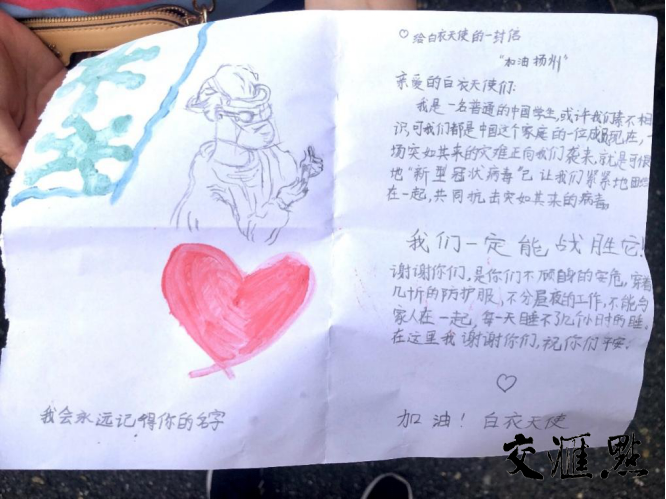 我会永远记得你的名字
♡ 给白衣天使的一封信
"加油 扬州"
亲爱的白衣天使们:
我是一名普通的中国学生,或许我们素不相
识,可我们都是中国这个家庭的一位成员现在,一
场突如其来的灾难正向我们袭来,就是可恨
地"新型冠状病毒"已让我们紧紧地团结
在一起,共同抗击突如其来的病毒。
我们一定能战胜它!
谢谢你们,是你们不顾自身的安危,穿着
几十斤的防护服,不分昼夜的工作,不能与
家人在一起,每一天睡不了几个小时的睡。
在这里我谢谢你们,祝你们平安.
♡
加油! 白衣天使
交汇点